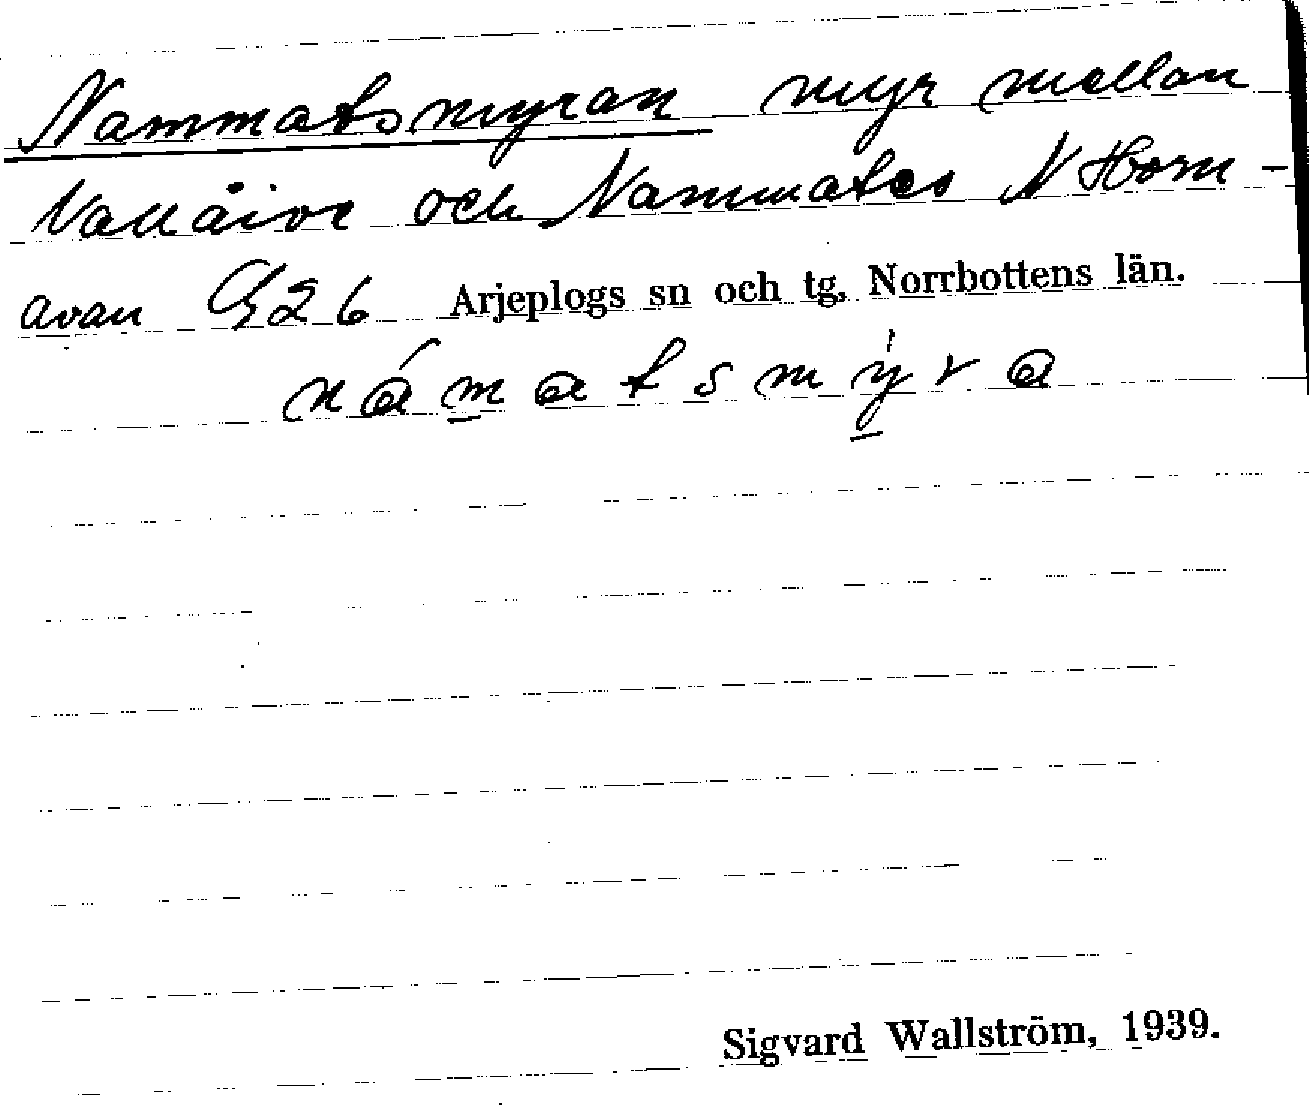 Nammatsmyran myr mellan
Vallåive och Nammates N Horn-
avan G26 Arjeplogs sn och tg, Norrbottens län.
námatsmýra
Sigvard Wallström, 1939.